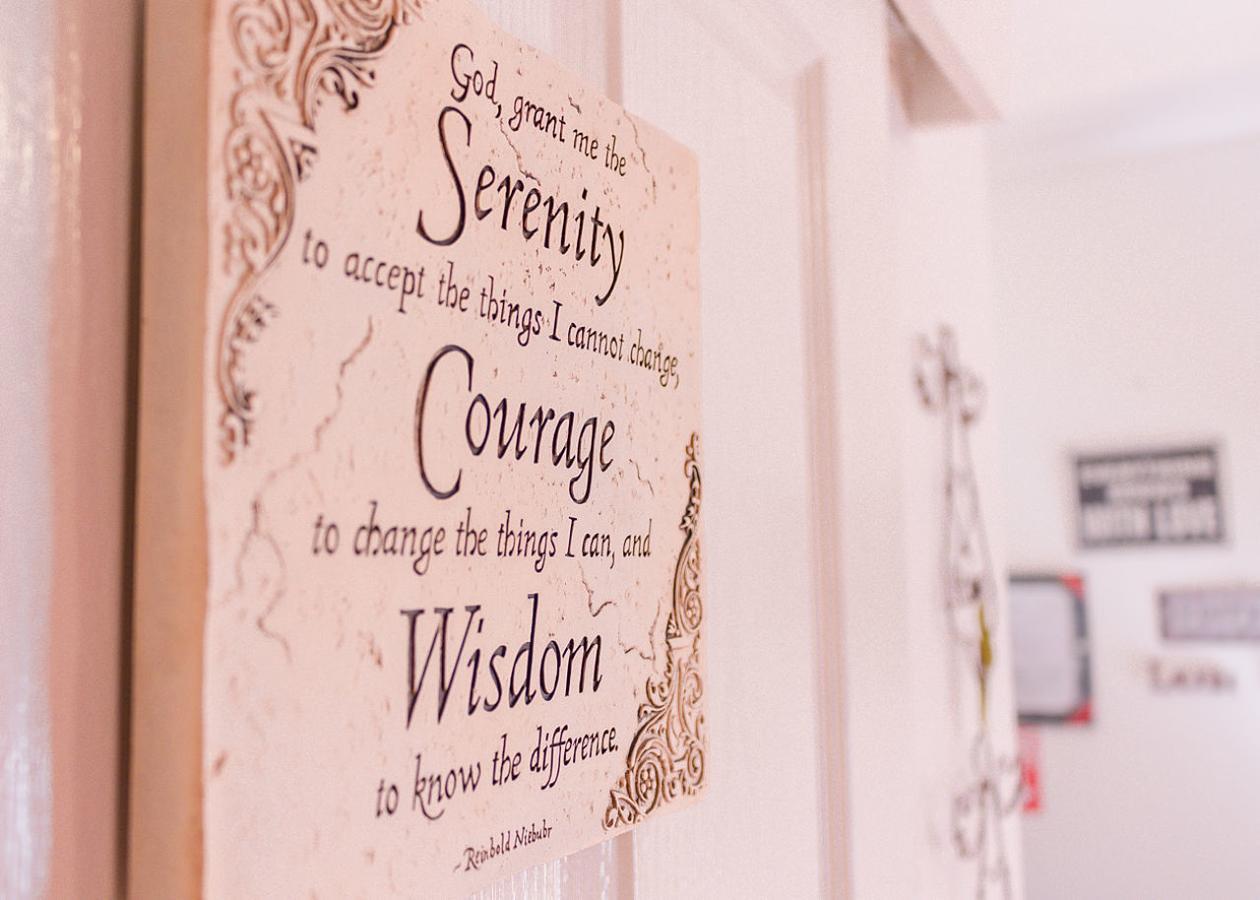 God, grant me the
Serenity
to accept the things I cannot change,
Courage
to change the things I can, and
Wisdom
to know the difference.
~Reinhold Niebuhr
WITH LOVE